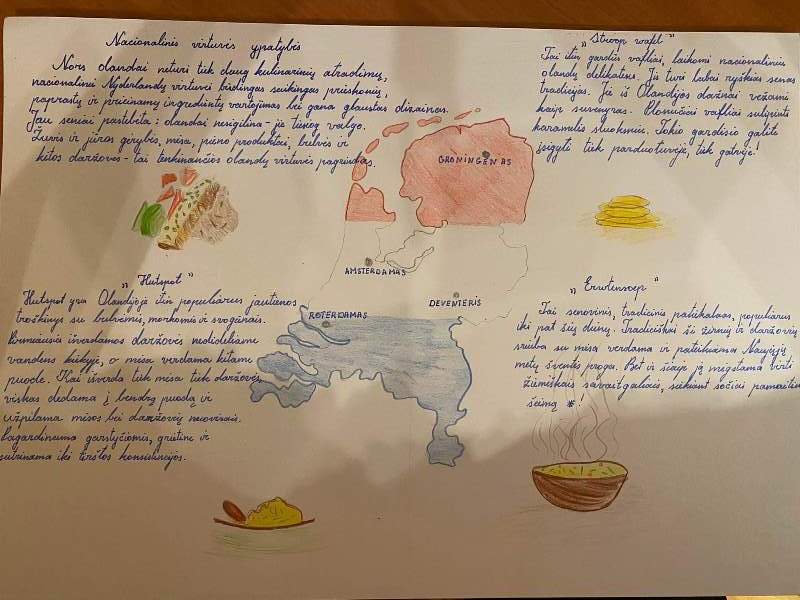 Nacionalinis virtuvės ypatybės
Nors olandai neturi tiek daug kulinarinių atradimų,
nacionalinei Nyderlandų virtuvei būdingas saikingas prieskonių,
paprastų ir prieinamų ingredientų vartojimas bei gana glaustas dizainas.
Jau seniai pastebėta: olandai nesigilina - ją tiesiog valgo.
Žuvis ir jūros gėrybės, mėsa, pieno produktai, bulvės ir
kitos daržovės - tai tenkinančios olandų virtuvės pagrindas.
„Stroop wafel"
Tai itin gardūs vafliai, laikomi nacionaliniu
olandų delikatesu. Jie turi labai ryškias senas
tradicijas. Jie iš Olandijos dažnai vežami
kaip suvenyras. Plonučiai vafliai sulipinti
karamelės sluoksniu. Tokio gardėsio galite
įsigyti tiek parduotuvėje, tiek gatvėje!
GRONINGENAS
AMSTERDAMAS
DEVENTERIS
ROTERDAMAS
„Hutspot"
Hutspot yra Olandijoje itin populiarus jautienos
troškinys su bulvėmis, morkomis ir svogūnais.
Pirmiausia išverdamos daržovės nedideliame
vandens kiekyje, o mėsa verdama kitame
puode. Kai išverda tiek mėsa tiek daržovės,
viskas dedama į bendrą puodą ir
užpilama mėsos bei daržovių nuovirais.
Pagardinama garstyčiomis, grietine ir
sutrinama iki tirštos konsistencijos.
„Erwtensoep"
Tai senovinis, tradicinis patiekalas, populiarus
iki pat šių dienų. Tradiciškai ši žirnių ir daržovių
sriuba su mėsa verdama ir patiekiama Naujųjų
metų šventės proga. Bet ir šiaip ją mėgstama virti
žiemiškais savaitgaliais, siekiant sočiai pamaitinti
šeimą !